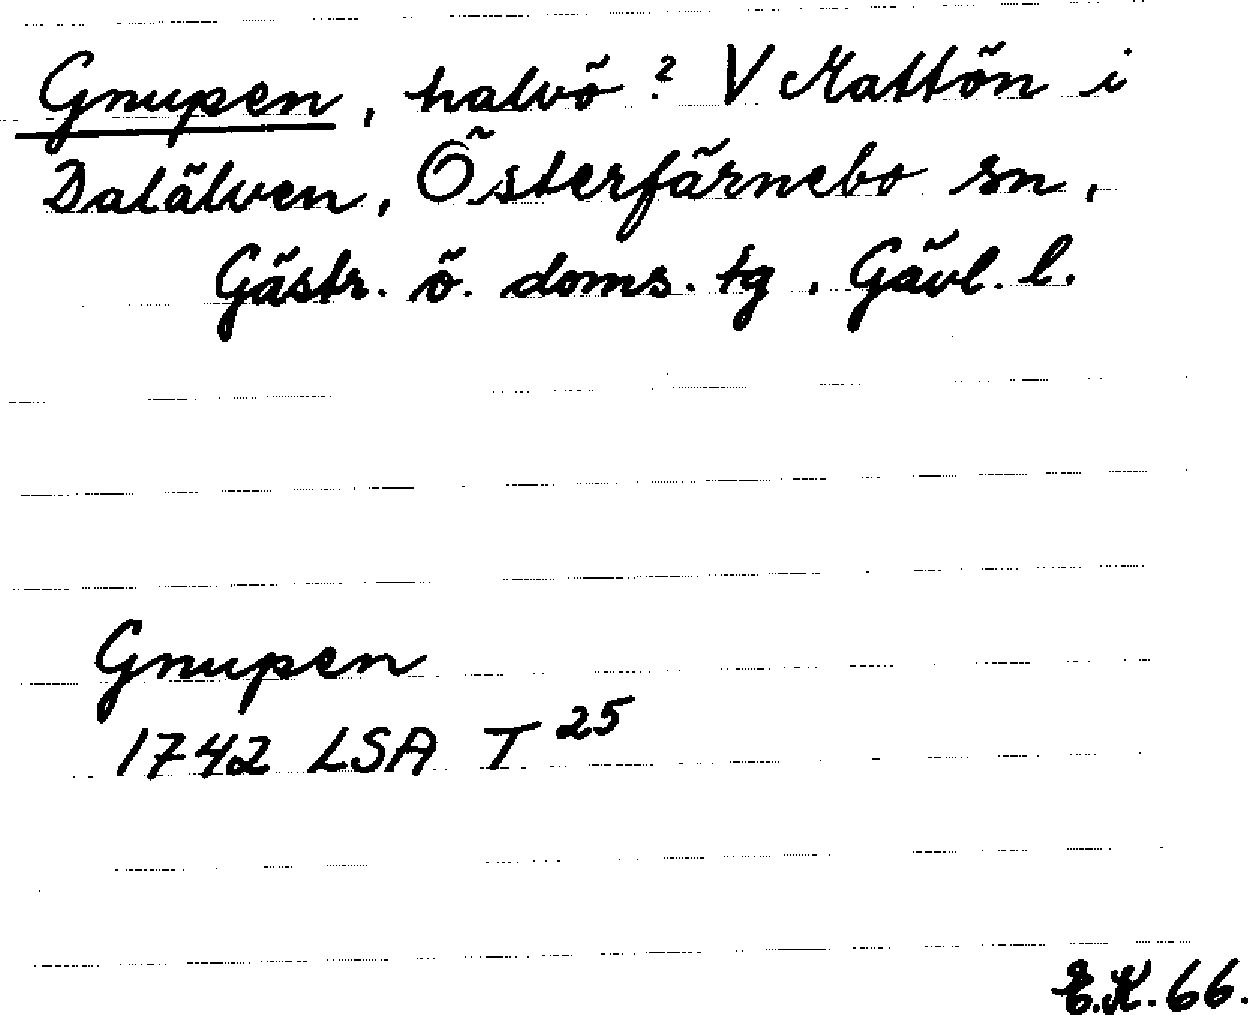 Gnupen, halvö? V Mattön i
Dalälven, Österfärnebo sn,
Gästr. ö. doms. tg, Gävl. l.
Gnupen
1742 LSA T 25
E.K. 66.